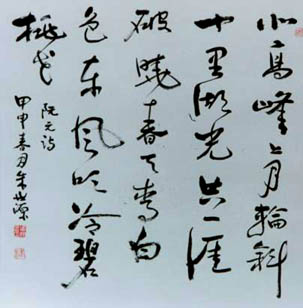 北高峰上月輪斜
十里湖光共一涯
破曉春天青白
色東風吹冷碧
桃花
阮元詩
甲申春月朱